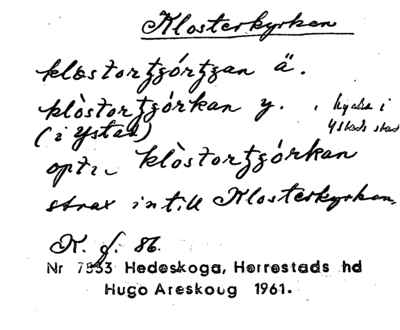 Klosterkyrkan
klòstortʒórtʒan ä.
klòstortʒórkan y. , kyrka i
(i Ystad) Ystads stad
opt. klòstortʒórkan
strax intill Klosterkyrkan.
K. f. 86.
Nr 7533 Hedeskoga, Herrestads hd
Hugo Areskoug 1961.